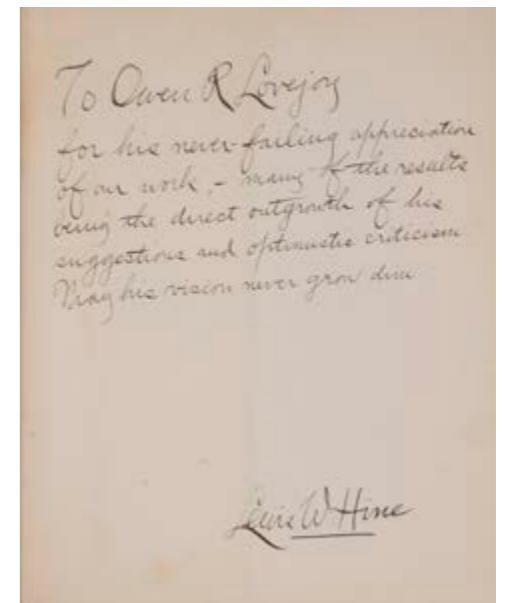 To Owen R Lovejoy
for his never-failing appreciation
of our work, - many of the results
being the direct outgrowth of his
suggestions and optimistic criticism
May his vision never grow dim
Lewis W Hine